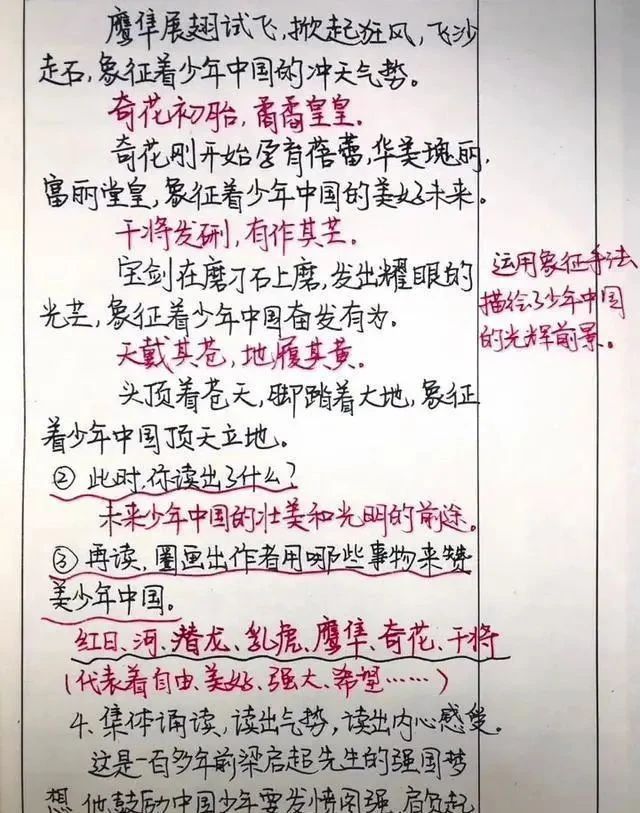 鹰隼展翅试飞,掀起狂风,飞沙
走石,象征着少年中国的冲天气势。
奇花初胎,矞矞皇皇。
奇花刚开始孕育蓓蕾,华美瑰丽,
富丽堂皇,象征着少年中国的美好未来。
干将发硎,有作其芒。
宝剑在磨刀石上磨,发出耀眼的
光芒,象征着少年中国奋发有为。
天戴其苍,地履其黄。
头顶着苍天,脚踏着大地,象征
着少年中国顶天立地。
②此时,你读出了什么?
未来少年中国的壮美和光明的前途。
③再读,圈画出作者用哪些事物来赞
美少年中国。
红日、河、潜龙、乳虎、鹰隼、奇花、干将
(代表着自由、美好、强大、希望……)
4、集体诵读,读出气势,读出内心感受。
这是一百多年前梁启超先生的强国梦
想,他鼓励中国少年要发愤图强,肩负起
运用象征手法
描绘了少年中国
的光辉前景。